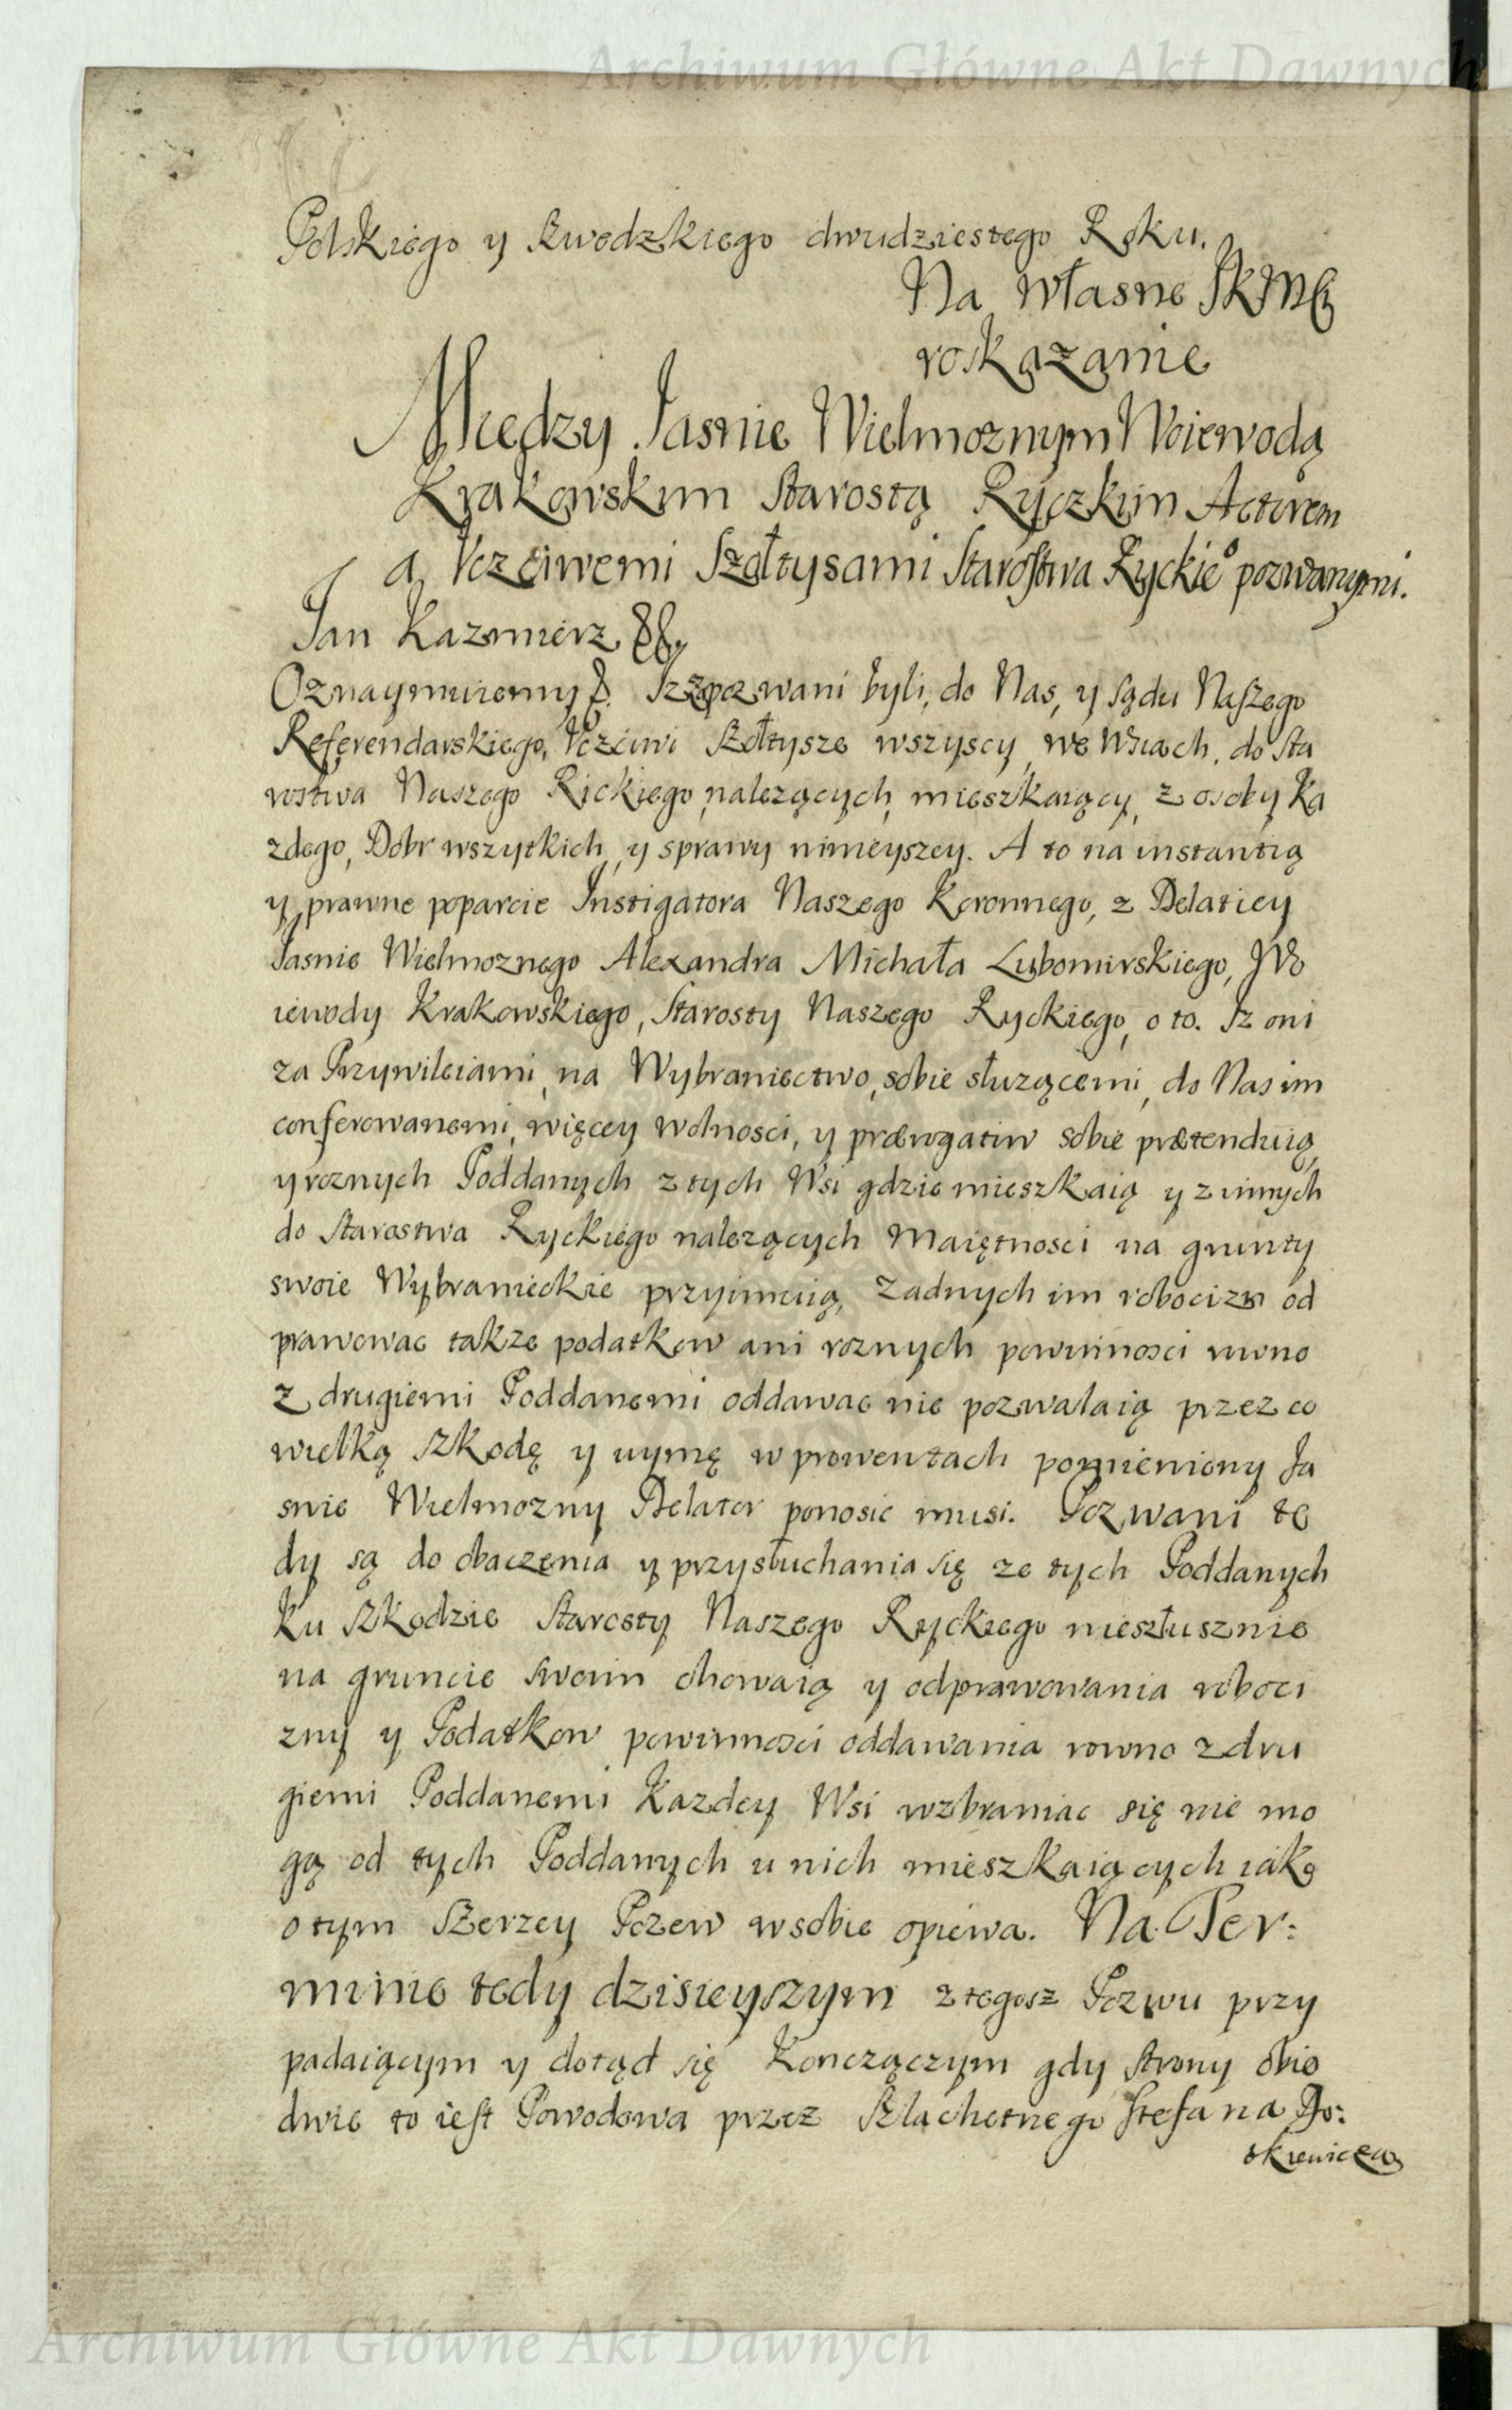 Archiwum Główne Akt Dawnych
Polskiego y Szwedzkiego dwudziestego Roku.
Na własne JKMCi
roskazanie
Między Jasnie Wielmoznym Woiewodą
Krakowskim Starostą Ryczkim Actorem
a Vczciwemi Szołtysami Starostwa Ryckieo pozwanymi.
Jan Kazimierz &&.
Oznaymuiemy &. Iz zapozwani byli, do Nas, y sądu Naszego
Referendarskiego, Vczciwi Szołtysze wszyscy, we Wsiach, do Sta
rostwa Naszego Rickiego, nalezących, mieszkaiący, z osoby Ka
zdego, Dobr wszytkich, y sprawy ninieyszey. A to na instantią
y prawne poparcie Instigatora Naszego Koronnego, z Delatiey
Jasnie Wielmoznego Alexandra Michała Lubomirskiego, Wo
iewody Krakowskiego, Starosty Naszego Ryckiego, o to. Iz oni
za Przywileiami, na Wybraniectwo, sobie słuzącemi, do Nas im
conferowanemi, więcey wolnosci, y prærogatiw sobie prætenduią,
y roznych Poddanych z tych Wsi gdzie mieszkaią y z innych
do Starostwa Ryckiego nalezących Maiętnosci na grunty
swoie Wybranieckie przyimuią, zadnych im robocizn od
prawowac takze podatkow ani roznych powinnosci rowno
z drugiemi Poddanemi oddawac nie pozwalaią przez co
wielką szkodę y uymę w prowentach pomieniony Ja
snie Wielmozny Delator ponosic musi. Pozwani te
dy są do obaczenia y przysłuchania się ze tych Poddanych
ku szkodzie Starosty Naszego Ryckiego niesłusznie
na gruncie swoim chowaią y odprawowania roboci
zny y Podatkow powinnosci oddawania rowno z dru
giemi Poddanemi Kazdey Wsi wzbraniac się nie mo
gą od tych Poddanych u nich mieszkaiących iako
o tym szerzey Pozew w sobie opiewa. Na Ter:
minie tedy dzisieyszym z tegosz Pozwu przy
padaiącym y dotąd się Konczączym gdy strony obie
dwie to iest Powodowa przez Szlachetnego Stefana
Archiwum Główne Akt Dawnych